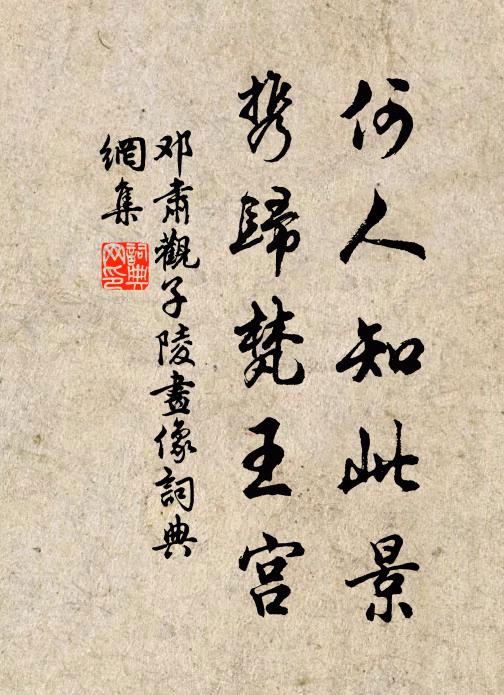 何人知此景
携歸梵王宫
邓肅觀子陵畫像詞典
網集
詞典
网印